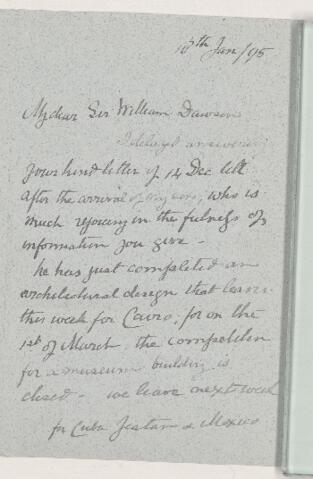 10th Jan/95
My dear Sir William Dawson
I delayed answering
your kind letter of 14 Dec till
after the arrival of my son, who is
much rejoicing in the fulness of
information you give -
he has just completed an
architectural design that leaves
this week for Cairo, for on the
1st of March the competition
for a museum building is
closed - we leave next week
for Cuba & Mexico